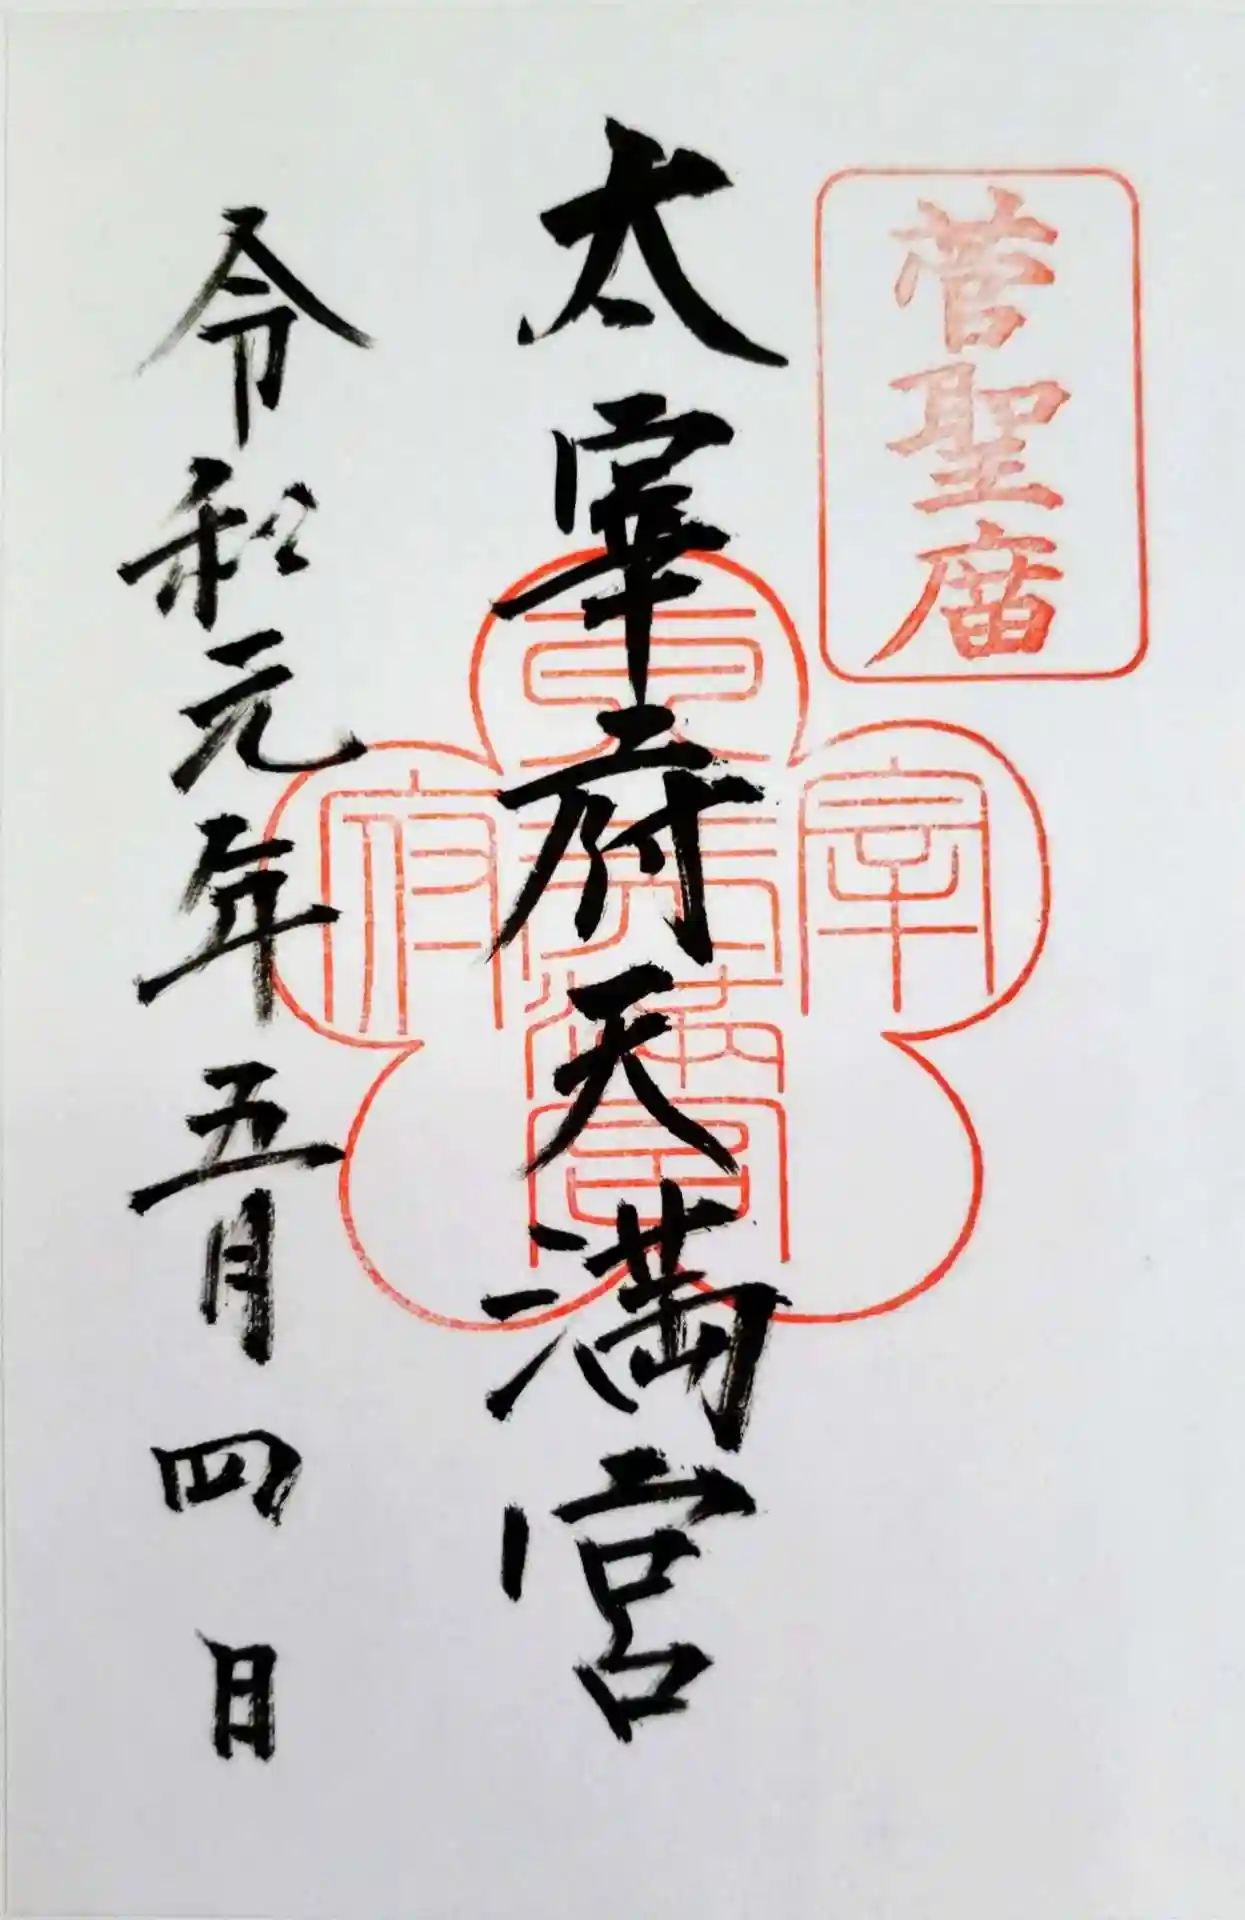 菅聖庿
太宰府天満宮
太宰府天満宮
令和元年五月四日